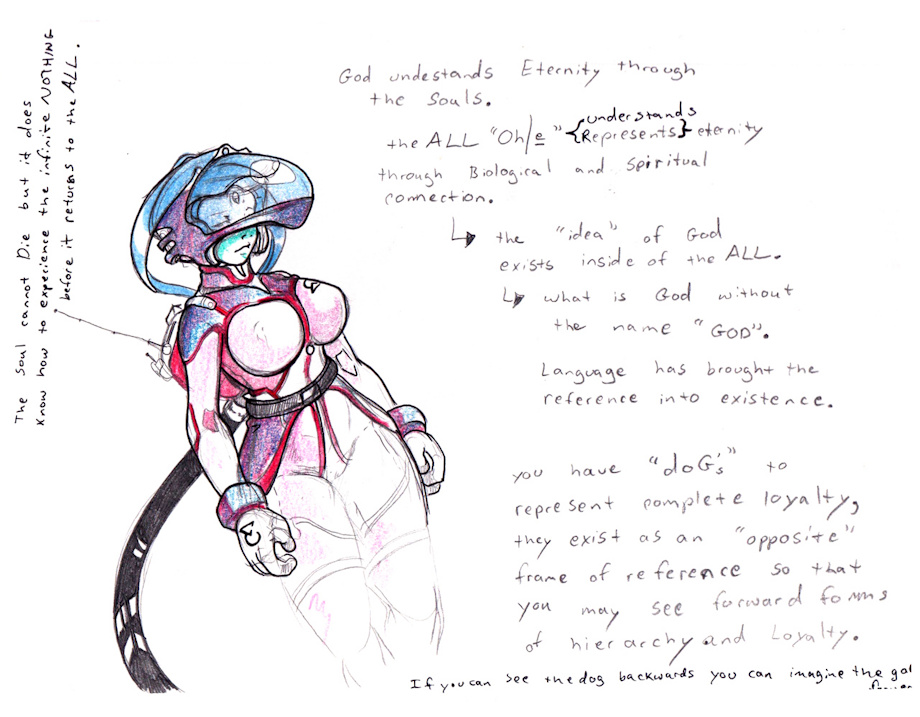 The Soul cannot Die but it does
know how to experience the infinite NOTHING
before it returns to the ALL.
God undestands Eternity through
the Souls.
understands
the ALL "Oh/e" {Represents} eternity
through Biological and Spiritual
connection.
the "idea" of God
exists inside of the ALL.
what is God without
the name "GOD".
Language has brought the
reference into existence.
you have "doG's" to
represent complete loyalty,
they exist as an "opposite"
frame of reference so that
you may see forward forms
of hierarchy and Loyalty.
If you can see the dog backwards you can imagine the